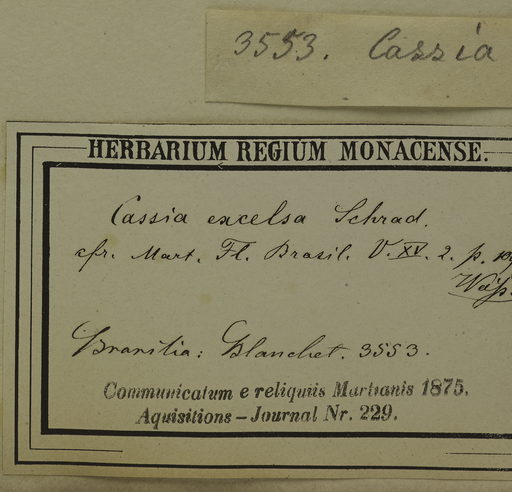 3553. Cassia
HERBARIUM REGIUM MONACENSE.
Cassia excelsa Schrad.
cfr. Mart. Fl. Brasil. V. XV. 2. p.
Brasilia: Blanchet. 3553.
Communicatum e reliquiis Martianis 1875.
Aquisitions – Journal Nr. 229.